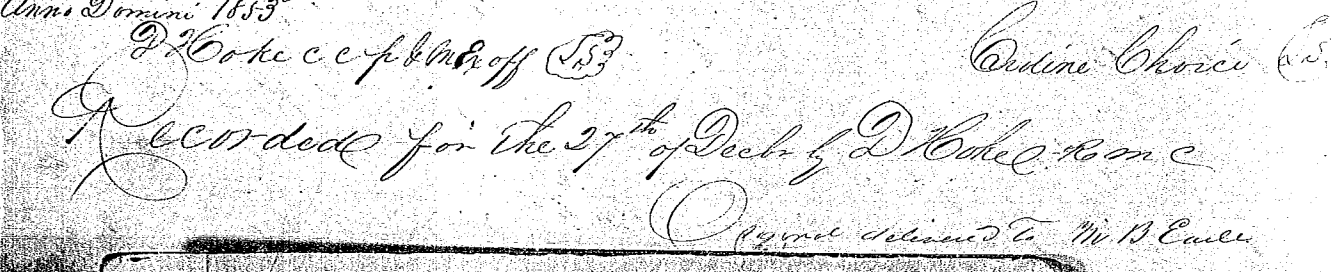 Anno Domini 1853
D Hoke c c p & M Ex off L.S. Ardine Choice L.S.
Recorded for the 27th of Decbr by D Hoke R m c
Original delivered to M B Earle